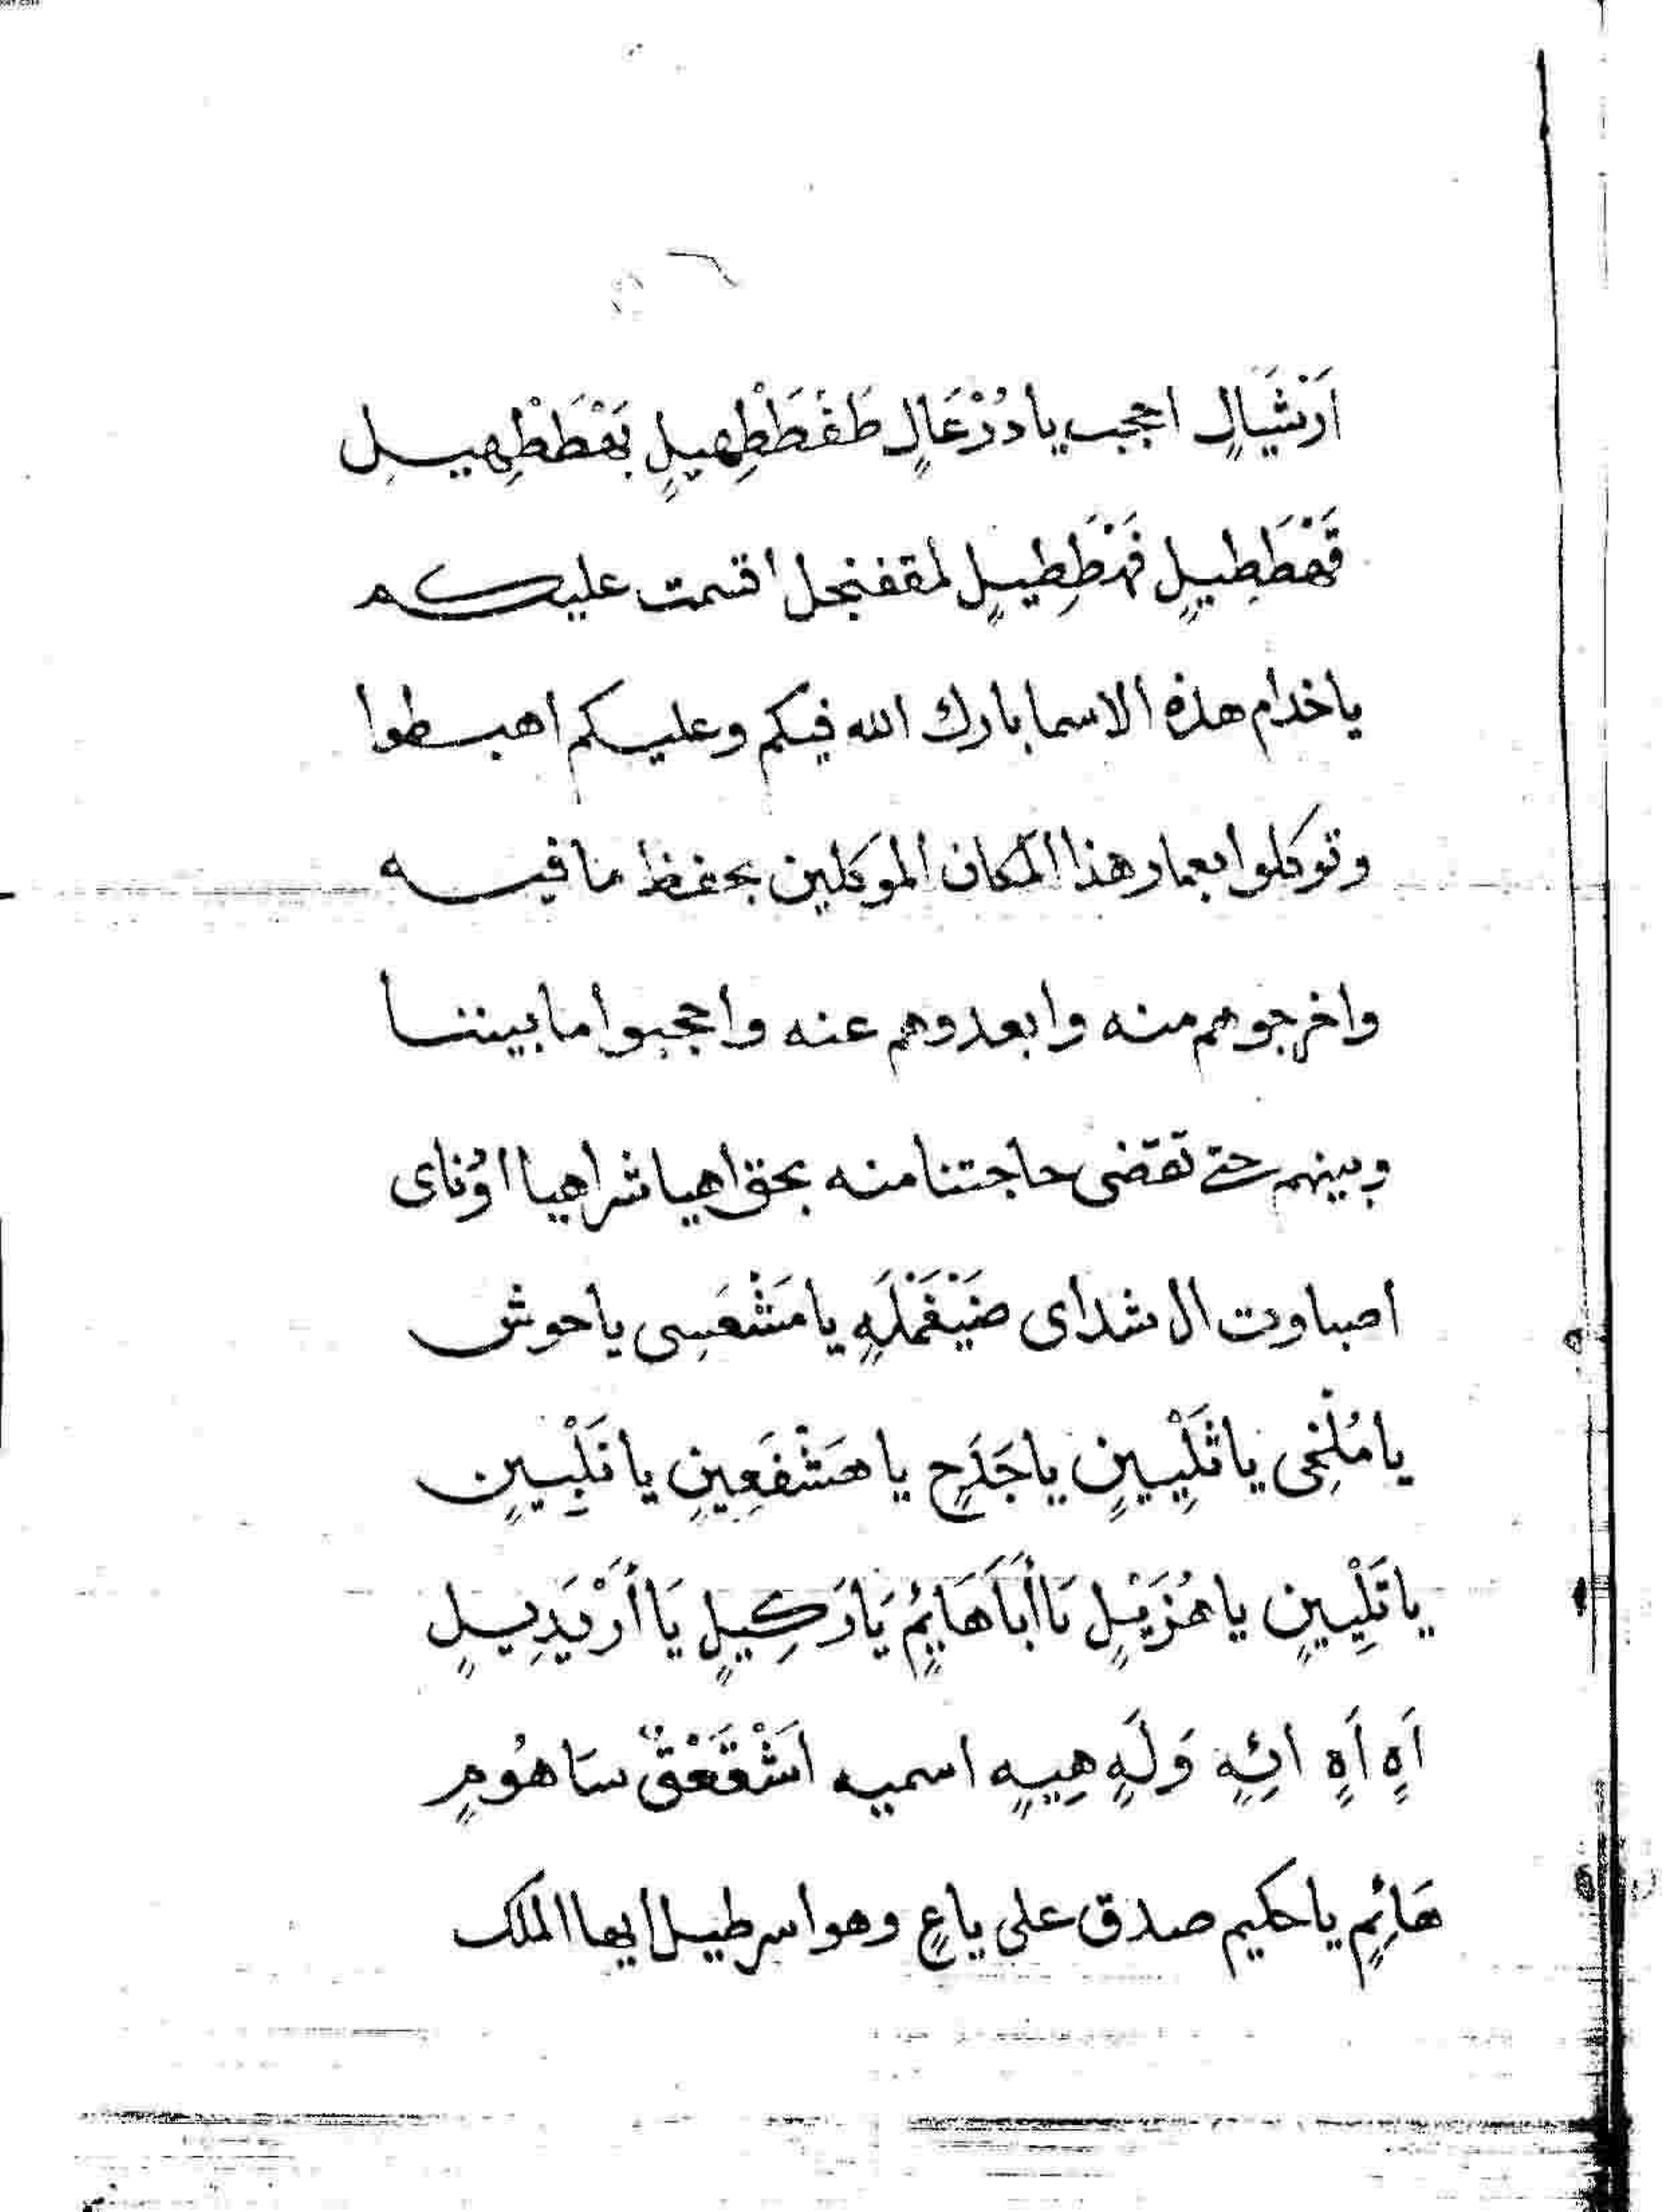 اَرْنَشَيَالٍ احجب يا دُرْعَالٍ طَفَطَطْهِيلٍ بَعْطَطْهِيلِ
قَهْطَطِيلٍ فَهْطَطِيلٍ لمقفنجل اقسمت عليكم
يا خدام هذه الاسما بارك الله فيكم وعليكم اهبطوا
وتوكلوا بعمار هذا المكان الموكلين بحفظ ما فيه
واخرجوهم منه وابعدوهم عنه واحجبوا ما بيننا
وبينهم حتى تقضى حاجتنا منه بحق اهيا شراهيا اؤناى
اصباوت ال شداى ضَيْغَمْلَهٍ يا مَشْعَسِى يا حوش
يا مُلْخِى يا ثَلِيْيينٍ يا جَدَحٍ يا هَشْفَعِينٍ يا نَلْبِيينٍ
يا تَلِيْيينٍ يا هُزَيْيلٍ يَا أَبَاَهَايُمٍ يَا دَرَكِيلٍ يَا أَرْيَدِيلٍ
اَهٍ اَهٍ ائِهٍ وَلَهٍ هِيهٍ اسميه اَشْقَعْقٌ سَاهُومٍ
هَائِمٍ يا حكيم صدق على ياعٍ وهو اسرطيل ايها الملك